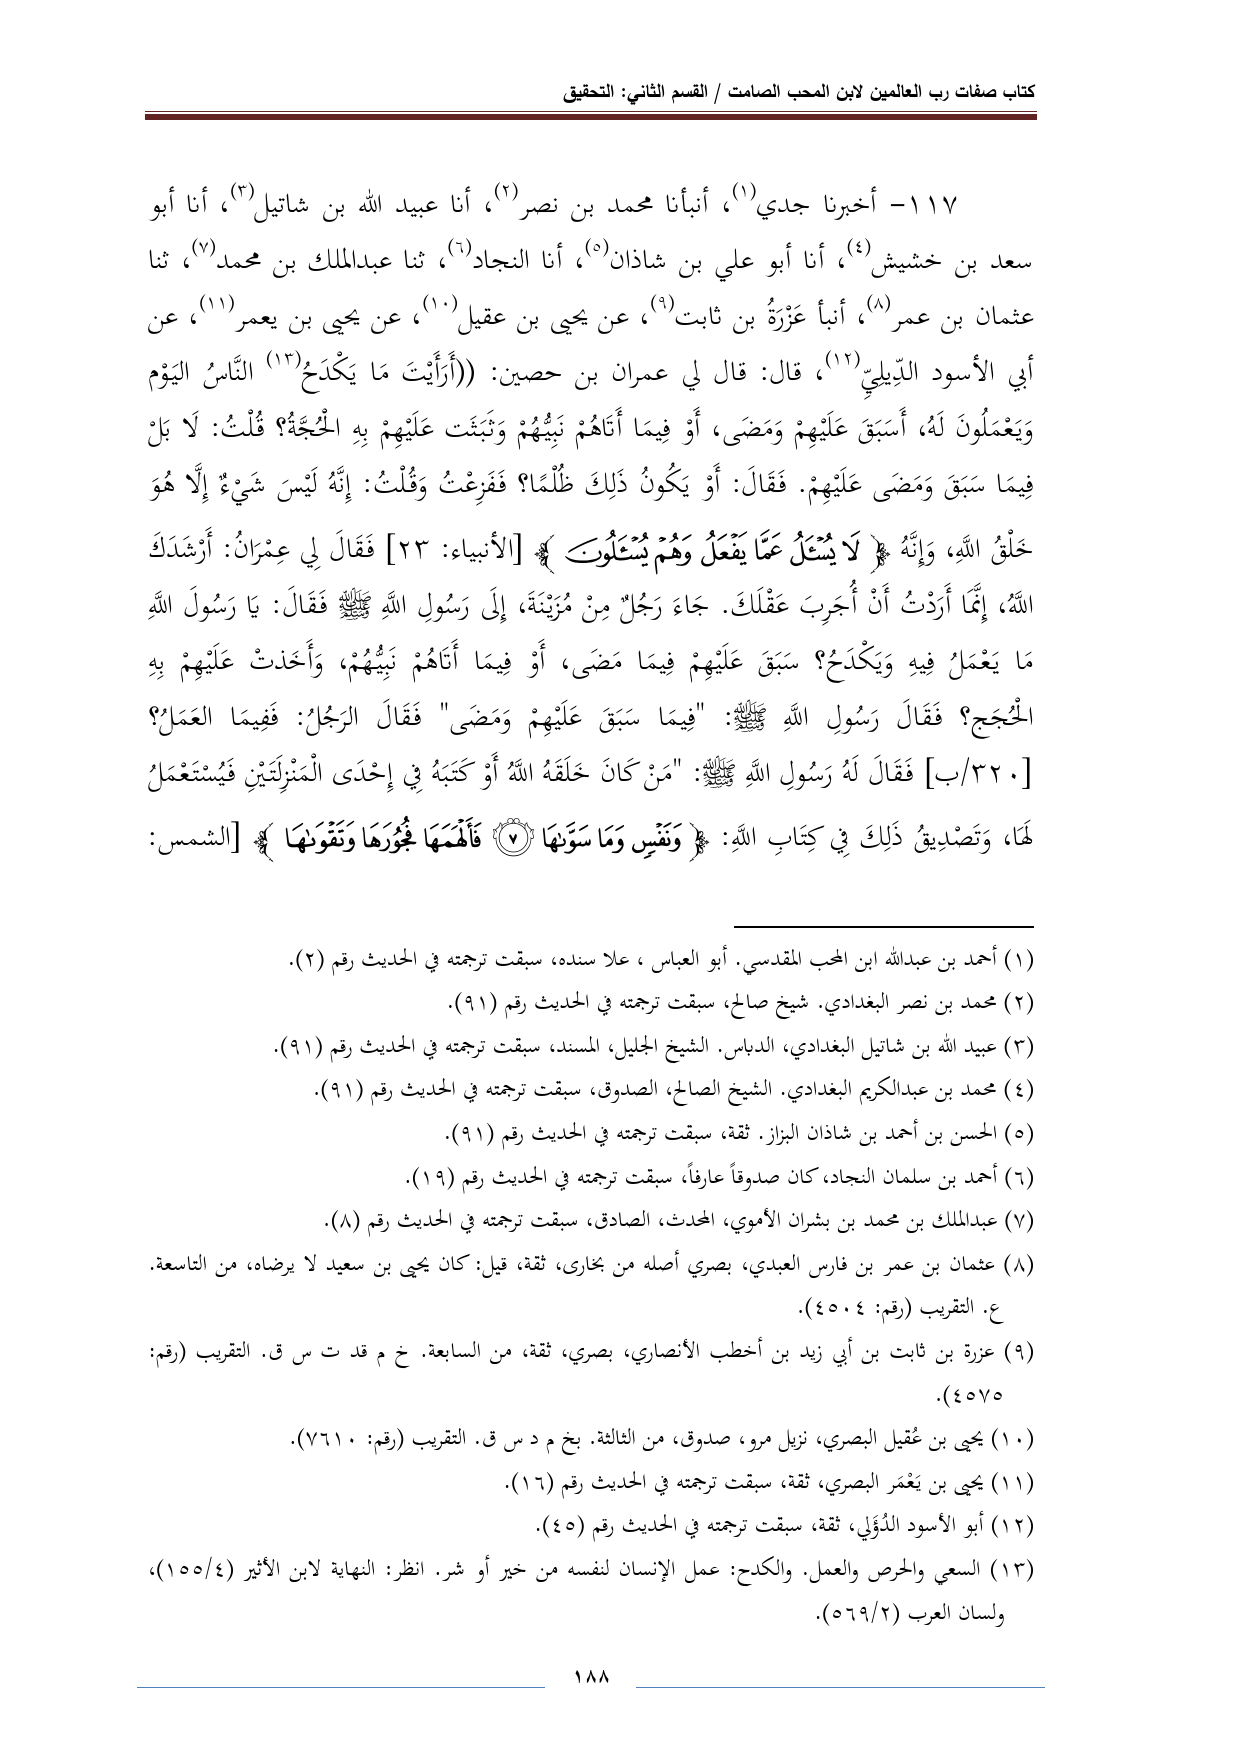 كتاب صفات رب العالمين لابن المحب الصامت / القسم الثاني: التحقيق
١١٧- أخبرنا جدي(١)، أنبأنا محمد بن نصر(٢)، أنا عبيد الله بن شاتيل(٣)، أنا أبو
سعد بن خشيش(٤)، أنا أبو علي بن شاذان(٥)، أنا النجاد(٦)، ثنا عبدالملك بن محمد(٧)، ثنا
عثمان بن عمر(٨)، أنبأ عَزْرَةُ بن ثابت(٩)، عن يحيى بن عقيل(١٠)، عن يحيى بن يعمر(١١)، عن
أبي الأسود الدِّيلِيِّ(١٢)، قال: قال لي عمران بن حصين: ((أَرَأَيْتَ مَا يَكْدَحُ(١٣) النَّاسُ اليَوْم
وَيَعْمَلُونَ لَهُ، أَسَبَقَ عَلَيْهِمْ وَمَضَى، أَوْ فِيمَا أَتَاهُمْ نَبِيُّهُمْ وَثَبَثَت عَلَيْهِمْ بِهِ الْحُجَّةُ؟ قُلْتُ: لَا بَلْ
فِيمَا سَبَقَ وَمَضَى عَلَيْهِمْ. فَقَالَ: أَوْ يَكُونُ ذَلِكَ ظُلْمًا؟ فَفَزِعْتُ وَقُلْتُ: إِنَّهُ لَيْسَ شَيْءٌ إِلَّا هُوَ
خَلْقُ اللَّهِ، وَإِنَّهُ ﴿ لَا يُسْـَٔلُ عَمَّا يَفْعَلُ وَهُمْ يُسْـَٔلُونَ ﴾ [الأنبياء: ٢٣] فَقَالَ لِي عِمْرَانُ: أَرْشَدَكَ
اللَّهُ، إِنَّمَا أَرَدْتُ أَنْ أُجَرِبَ عَقْلَكَ. جَاءَ رَجُلٌ مِنْ مُزَيْنَةَ، إِلَى رَسُولِ اللَّهِ ﷺ فَقَالَ: يَا رَسُولَ اللَّهِ
مَا يَعْمَلُ فِيهِ وَيَكْدَحُ؟ سَبَقَ عَلَيْهِمْ فِيمَا مَضَى، أَوْ فِيمَا أَتَاهُمْ نَبِيُّهُمْ، وَأَخَذتْ عَلَيْهِمْ بِهِ
الْحُجَج؟ فَقَالَ رَسُولِ اللَّهِ ﷺ: "فِيمَا سَبَقَ عَلَيْهِمْ وَمَضَى" فَقَالَ الرَجُلُ: فَفِيمَا العَمَلُ؟
[٣٢٠/ب] فَقَالَ لَهُ رَسُولِ اللَّهِ ﷺ: "مَنْ كَانَ خَلَقَهُ اللَّهُ أَوْ كَتَبَهُ فِي إِحْدَى الْمَنْزِلَتَيْنِ فَيُسْتَعْمَلُ
لَهَا، وَتَصْدِيقُ ذَلِكَ فِي كِتَابِ اللَّهِ: ﴿ وَنَفْسٍ وَمَا سَوَّىٰهَا ٧ فَأَلْهَمَهَا فُجُورَهَا وَتَقْوَىٰهَا ﴾ [الشمس:
(١) أحمد بن عبدالله ابن المحب المقدسي. أبو العباس ، علا سنده، سبقت ترجمته في الحديث رقم (٢).
(٢) محمد بن نصر البغدادي. شيخ صالح، سبقت ترجمته في الحديث رقم (٩١).
(٣) عبيد الله بن شاتيل البغدادي، الدباس. الشيخ الجليل، المسند، سبقت ترجمته في الحديث رقم (٩١).
(٤) محمد بن عبدالكريم البغدادي. الشيخ الصالح، الصدوق، سبقت ترجمته في الحديث رقم (٩١).
(٥) الحسن بن أحمد بن شاذان البزاز. ثقة، سبقت ترجمته في الحديث رقم (٩١).
(٦) أحمد بن سلمان النجاد، كان صدوقاً عارفاً، سبقت ترجمته في الحديث رقم (١٩).
(٧) عبدالملك بن محمد بن بشران الأموي، المحدث، الصادق، سبقت ترجمته في الحديث رقم (٨).
(٨) عثمان بن عمر بن فارس العبدي، بصري أصله من بخارى، ثقة، قيل: كان يحيى بن سعيد لا يرضاه، من التاسعة.
ع. التقريب (رقم: ٤٥٠٤).
(٩) عزرة بن ثابت بن أبي زيد بن أخطب الأنصاري، بصري، ثقة، من السابعة. خ م قد ت س ق. التقريب (رقم:
٤٥٧٥).
(١٠) يحيى بن عُقيل البصري، نزيل مرو، صدوق، من الثالثة. بخ م د س ق. التقريب (رقم: ٧٦١٠).
(١١) يحيى بن يَعْمَر البصري، ثقة، سبقت ترجمته في الحديث رقم (١٦).
(١٢) أبو الأسود الدُؤَلي، ثقة، سبقت ترجمته في الحديث رقم (٤٥).
(١٣) السعي والحرص والعمل. والكدح: عمل الإنسان لنفسه من خير أو شر. انظر: النهاية لابن الأثير (١٥٥/٤)،
ولسان العرب (٥٦٩/٢).
١٨٨